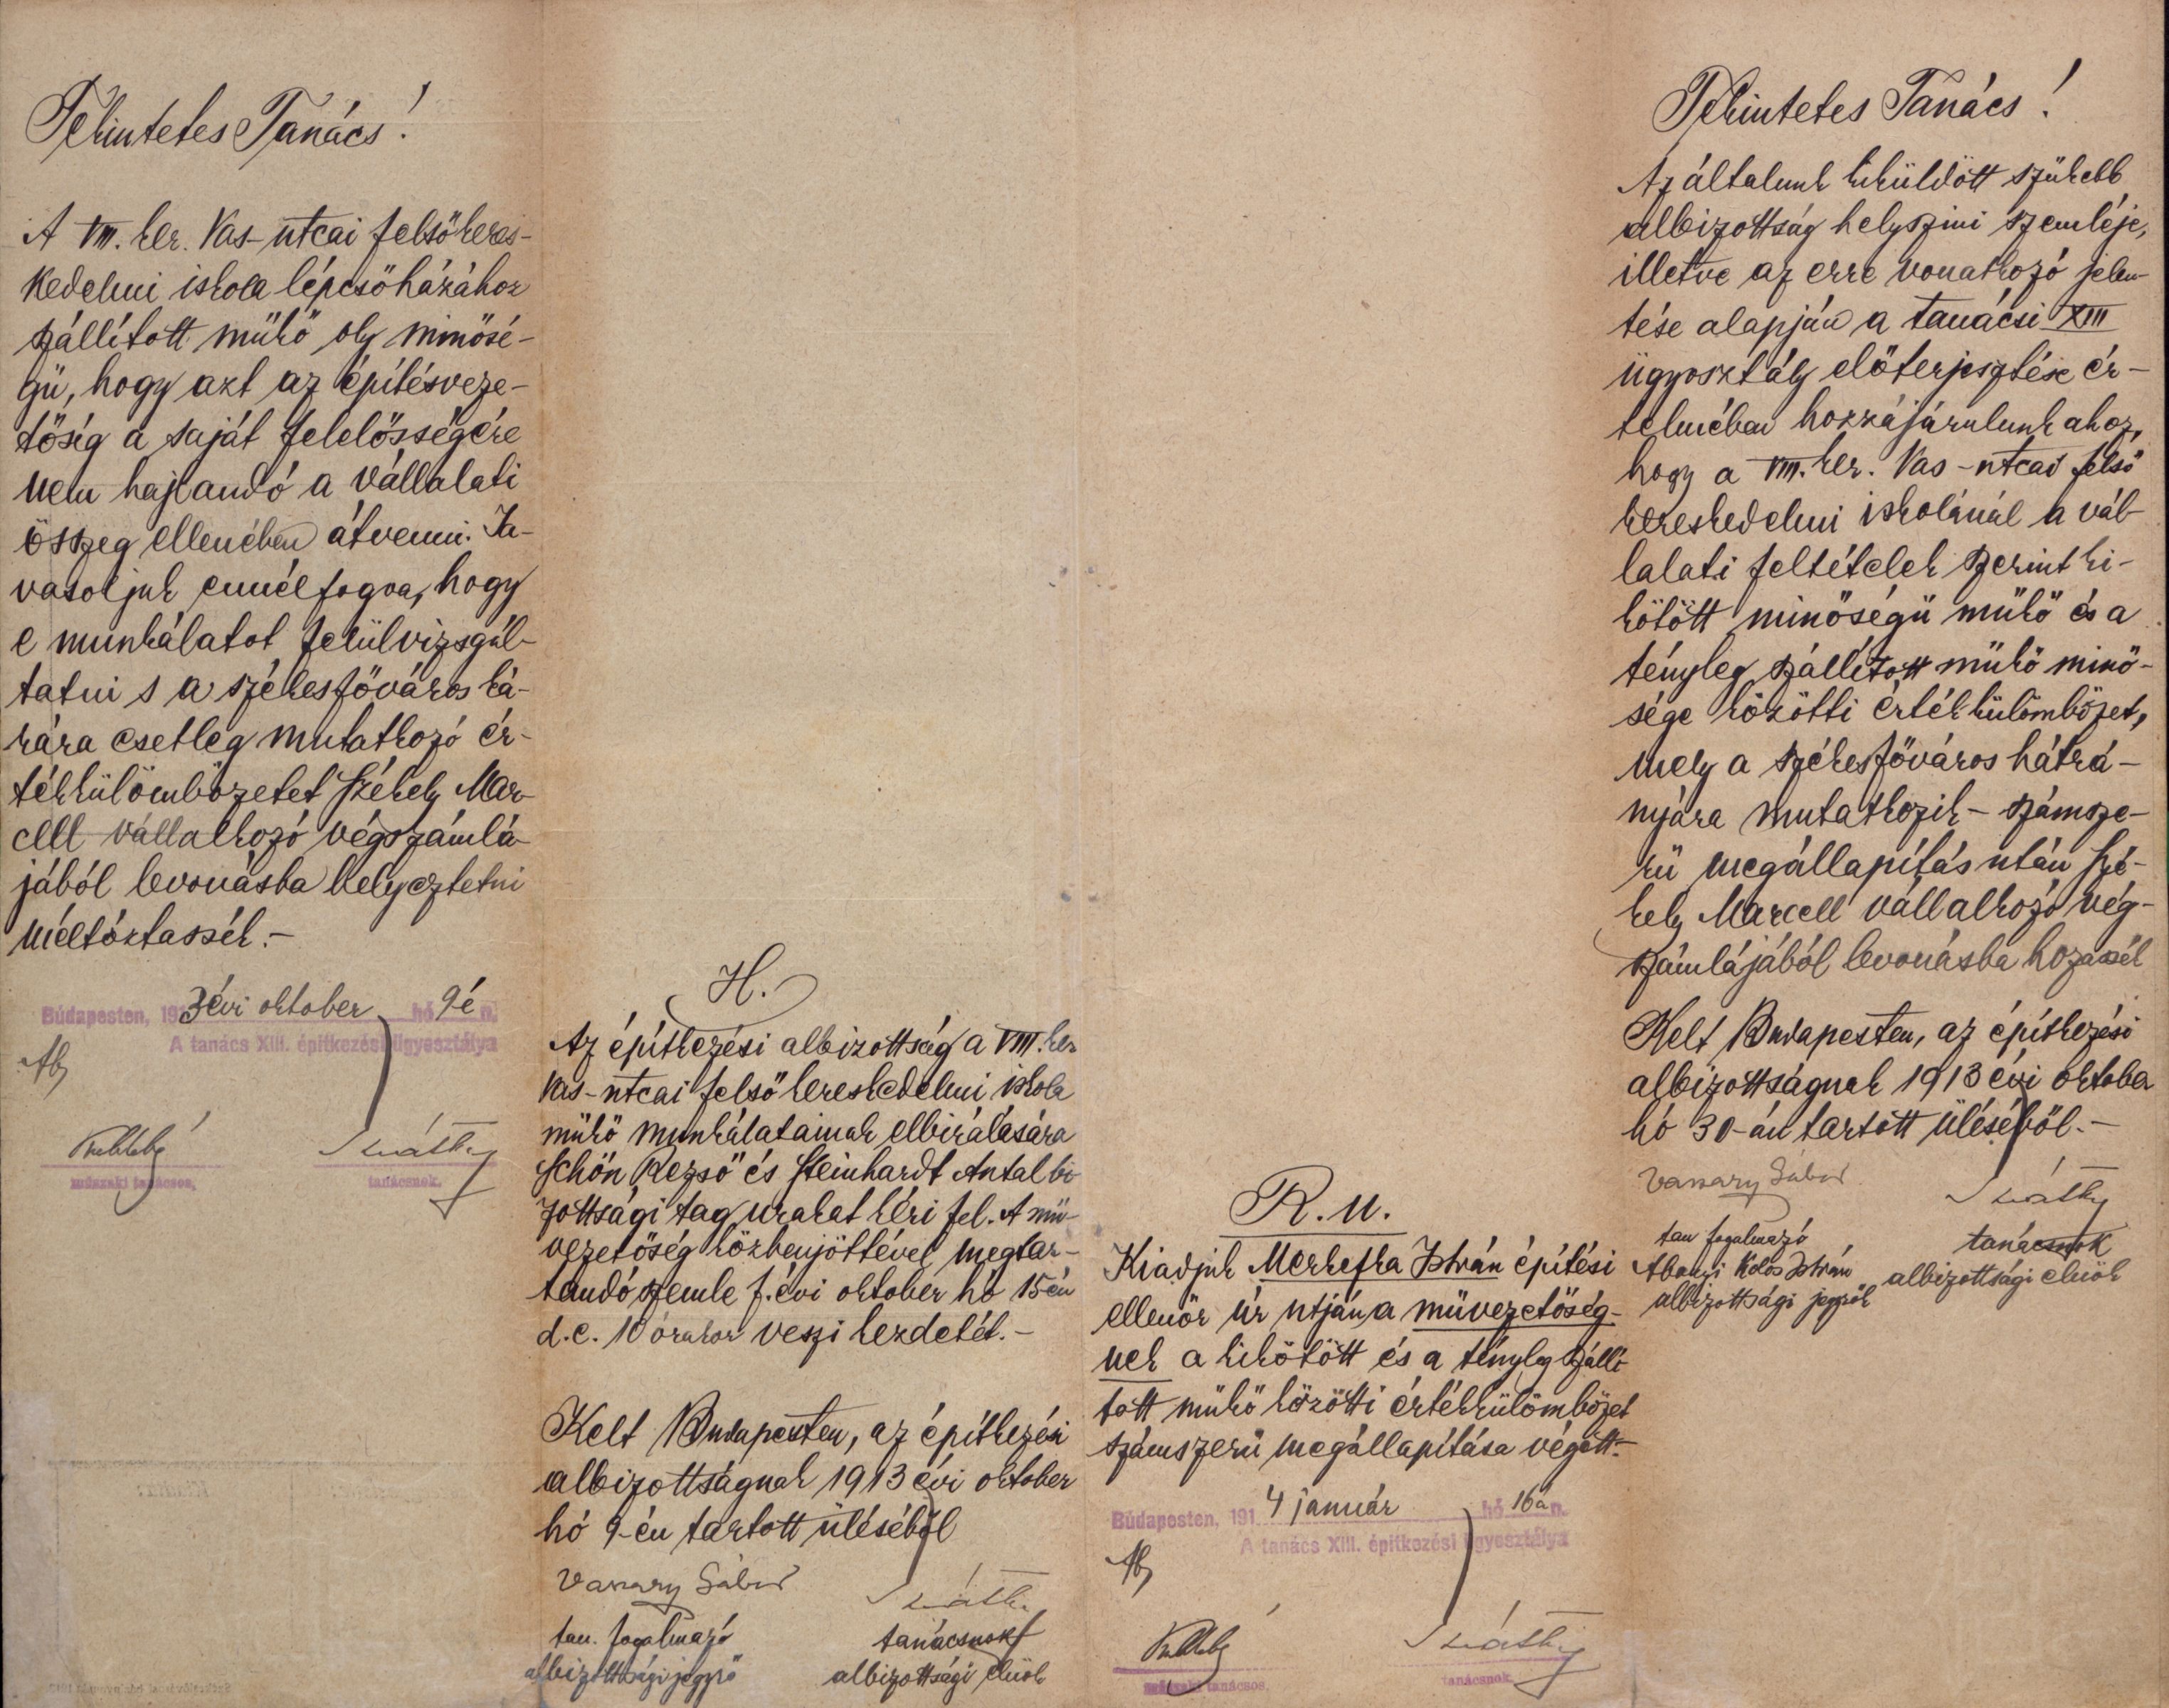 Tekintetes Tanács!
A VIII. ker. Vas-utcai felsőkeres-
kedelmi iskola lépcsőházához
szállított műkő oly minősé-
gű, hogy azt az építésveze-
tőség a saját felelősségére
nem hajlandó a vállalati
összeg ellenében átvenni. Ja-
vasoljuk ennélfogva, hogy
e munkálatot felülvizsgál-
tatni s a székesfőváros ká-
rára esetleg mutatkozó ér-
tékkülömbözetet Székely Mar-
cell vállalkozó végszámlá-
jából levonásba helyeztetni
méltóztassék.-
Budapesten, 1913 évi oktober hó 9 én.
A tanács XIII. építkezési ügyosztálya
műszaki tanácsos,
tanácsnok.
H.
Az építkezési albizottság a VIII. ker
Vas-utcai felső kereskedelmi iskola
műkő munkálatainak elbirálására
Schön Rezső és Steinhardt Antal bi-
zottsági tag urakat kéri fel. A mű-
vezetőség közbenjöttével megtar-
tandó szemle f. évi oktober hó 15-én
d. e. 10 órakor veszi kezdetét.-
Kelt Budapesten, az építkezési
albizottságnak 1913 évi oktober
hó 9-én tartott üléséből
Vassary Gábor
tan. fogalmazó
albizottsági jegyző
tanácsnok
albizottsági elnök
R. u.
Kiadjuk Merkefka István építési
ellenőr úr utján a művezetőség-
nek a kikötött és a tényleg szállí-
tott műkő közötti értékkülömbözet
számszerű megállapítása végett.-
Budapesten, 1914 január hó 16 án.
A tanács XIII. építkezési ügyosztálya
műszaki tanácsos.
tanácsnok.
Tekintetes Tanács!
Az általunk kiküldött szűkebb
albizottság helyszini szemléje,
illetve az erre vonatkozó jelen-
tése alapján a tanácsi XIII
ügyosztály előterjesztése ér-
telmében hozzájárulunk ahoz,
hogy a VIII. ker. Vas-utcai felső
kereskedelmi iskolánál a vál-
lalati feltételek szerint ki-
kötött minőségű műkő és a
tényleg szállított műkő minő-
sége közötti értékkülömbözet,
mely a székesfőváros hátrá-
nyára mutatkozik - számsze-
rű megállapítás után Szé-
kely Marcell vállalkozó vég-
számlájából levonásba hozassék
Kelt Budapesten, az építkezési
albizottságnak 1913 évi oktober
hó 30-án tartott üléséből.-
Vassary Gábor
tan fogalmazó
István
albizottsági jegyzők
tanácsnok
albizottsági elnök